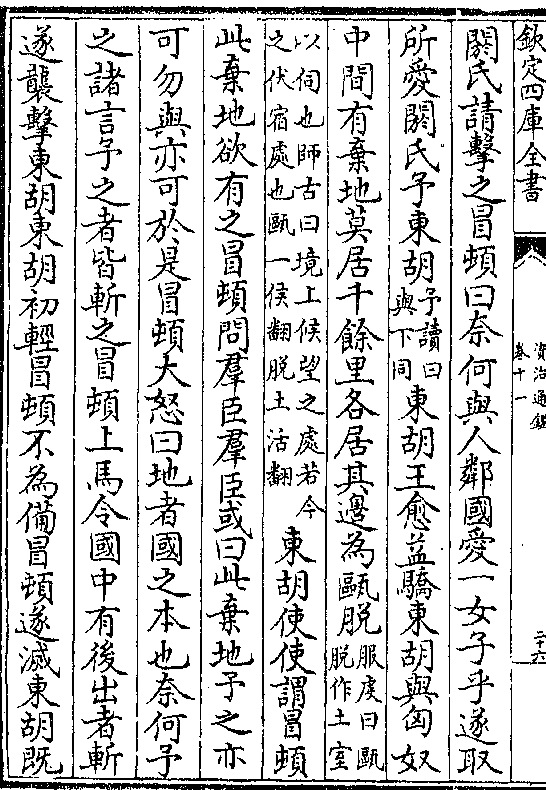 欽定四庫全書
資治通鑑
卷十一
二十六
閼氏請擊之冒頓曰奈何與人鄰國愛一女子乎遂取
所愛閼氏予東胡予讀曰
與下同東胡王愈益驕東胡與匈奴
中間有棄地莫居千餘里各居其邊為甌脫服虔曰甌
脫作土室
以伺也師古曰境上候望之處若今
之伏宿處也甌一侯翻脫土活翻東胡使使謂冒頓
此棄地欲有之冒頓問羣臣羣臣或曰此棄地予之亦
可勿與亦可於是冒頓大怒曰地者國之本也奈何予
之諸言予之者皆斬之冒頓上馬令國中有後出者斬
遂襲擊東胡東胡初輕冒頓不為備冒頓遂滅東胡既